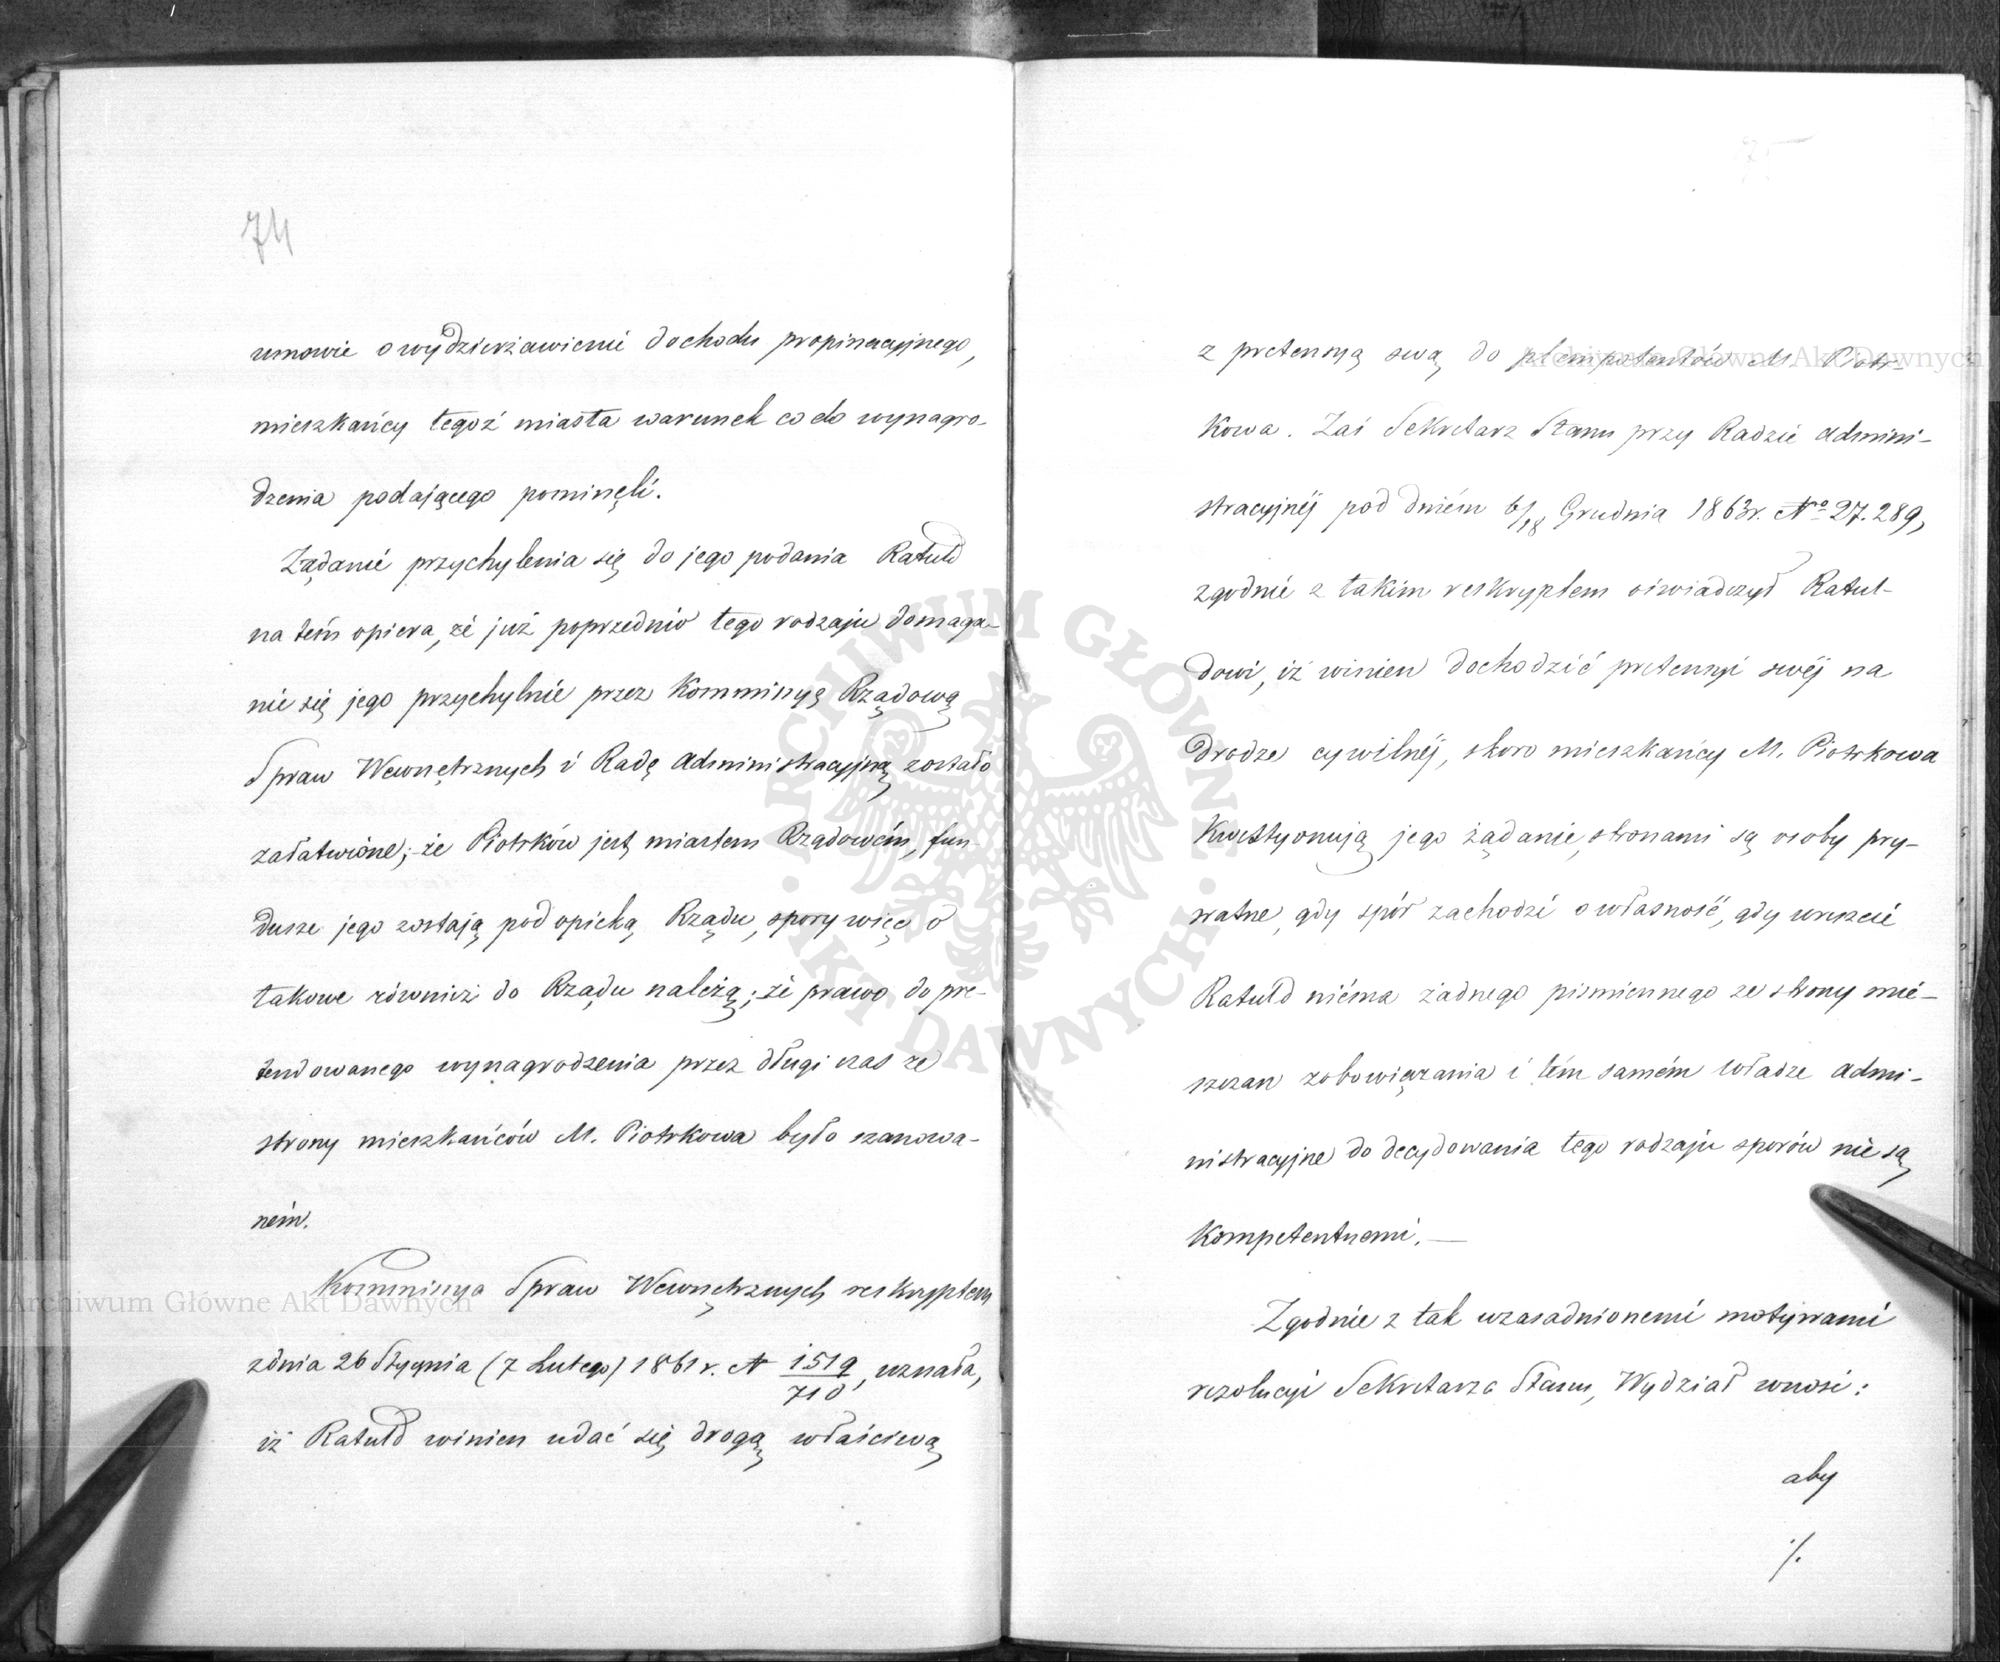 74
umowie o wydzierżawienie dochodu propinacyjnego,
mieszkańcy tegoż miasta warunek co do wynagro-
dzenia podającego pominęli.
Żądanie przychylenia się do jego podania Ratuld
na tém opiera, że już poprzednio tego rodzaju domaga-
nie się jego przychylnie przez Kommissyę Rządową
Spraw Wewnętrznych i Radę Administracyjną zostało
załatwione; że Piotrków jest miastem Rządowém, fun-
dusze jego zostają pod opieką Rządu, spory więc o
takowe również do Rządu należą; że prawo do pre-
tendowanego wynagrodzenia przez długi czas ze
strony mieszkańców M. Piotrkowa było szanowa-
ném.
Kommissya Spraw Wewnętrznych reskryptem
z dnia 26 Stycznia (7 Lutego) 1861 r. N 1519/710, uznała,
iż Ratułd winien udać się drogą właściwą
75
z pretensyą swą do plenipotentów M. Piotr-
kowa. Zaś Sekretarz Stanu przy Radzie Admini-
stracyjnéj pod dniem 6/18 Grudnia 1863 r. No 27.289,
zgodnie z takim reskryptem oświadczył Ratul-
dowi, iż winien dochodzić pretensyi swéj na
drodze cywilnéj, skoro mieszkańcy M. Piotrkowa
kwestyonują jego żądanie, stronami są osoby pry-
watne, gdy spór zachodzi o własność, gdy wreszcie
Ratułd niéma żadnego piśmiennego ze strony mie-
szczan zobowiązania i tém samém władze admi-
nistracyjne do decydowania tego rodzaju sporów nie są
kompetentnemi. —
Zgodnie z tak uzasadnionemi motywami
rezolucyi Sekretarza Stanu, Wydział wnosi:
aby
./.
Archiwum Główne Akt Dawnych
Archiwum Główne Akt Dawnych
ARCHIWUM GŁÓWNE
· AKT DAWNYCH ·